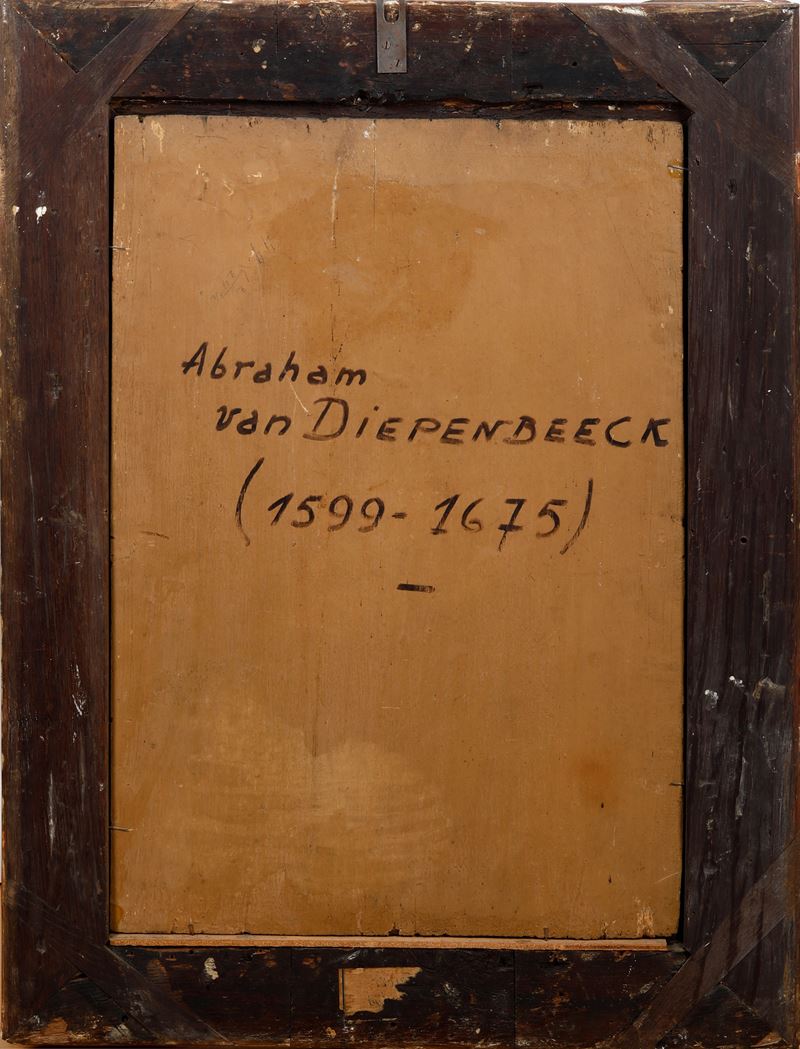 Abraham
van DIEPENBEECK
(1599-1675)